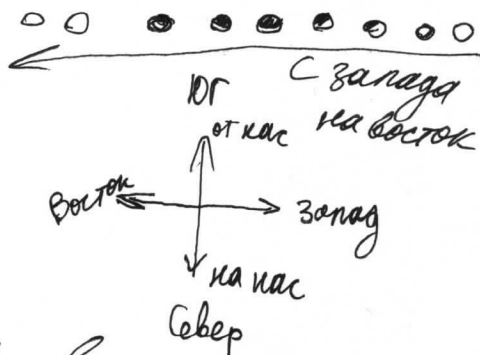 С запада
на восток
Юг
от нас
Восток
Запад
на нас
Север